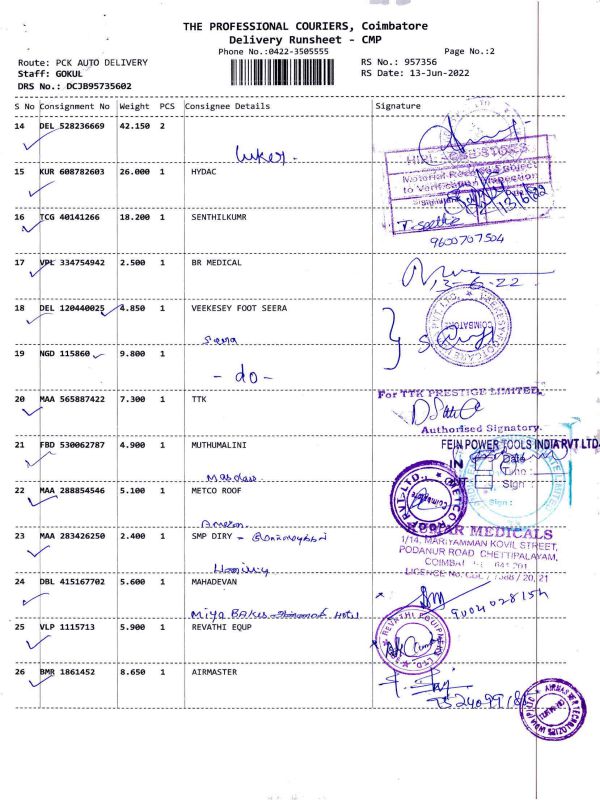 THE PROFESSIONAL COURIERS, Coimbatore
Delivery Runsheet - CMP
Phone No.:0422-3505555
Page No.:2
Route: PCK AUTO DELIVERY
RS No.: 957356
Staff: GOKUL
RS Date: 13-Jun-2022
DRS No.: DCJB95735602
S No Consignment No Weight PCS Consignee Details Signature
14 DEL 528236669 42.150 2
15 KUR 608782603 26.000 1 HYDAC
Material Received Subject
to Verification / Inspection
13/6/22
16 TCG 40141266 18.200 1 SENTHILKUMR
9600707504
17 VPL 334754942 2.500 1 BR MEDICAL
13-6-22
18 DEL 120440025 4.850 1 VEEKESEY FOOT SEERA
VEEKESY FOOTCARE PVT. LTD.
COIMBATORE
19 NGD 115860 9.800 1
- do -
20 MAA 565887422 7.300 1 TTK
For TTK PRESTIGE LIMITED
Authorised Signatory.
21 FBD 530062787 4.900 1 MUTHUMALINI
FEIN POWER TOOLS INDIA PVT LTD
IN Date
Time :
Sign :
22 MAA 288854546 5.100 1 METCO ROOF
METCO ROOF PVT. LTD.
Coimbatore
Sign :
Amazon
23 MAA 283426250 2.400 1 SMP DIRY -
MEDICALS
1/14, MARIYAMMAN KOVIL STREET,
PODANUR ROAD CHETTIPALAYAM,
COIMBAT 641 201
24 DBL 415167702 5.600 1 MAHADEVAN
Miya BAKES Hotel
25 VLP 1115713 5.900 1 REVATHI EQUP
REVATHI EQUIPMENT LTD.
26 BMR 1861452 8.650 1 AIRMASTER